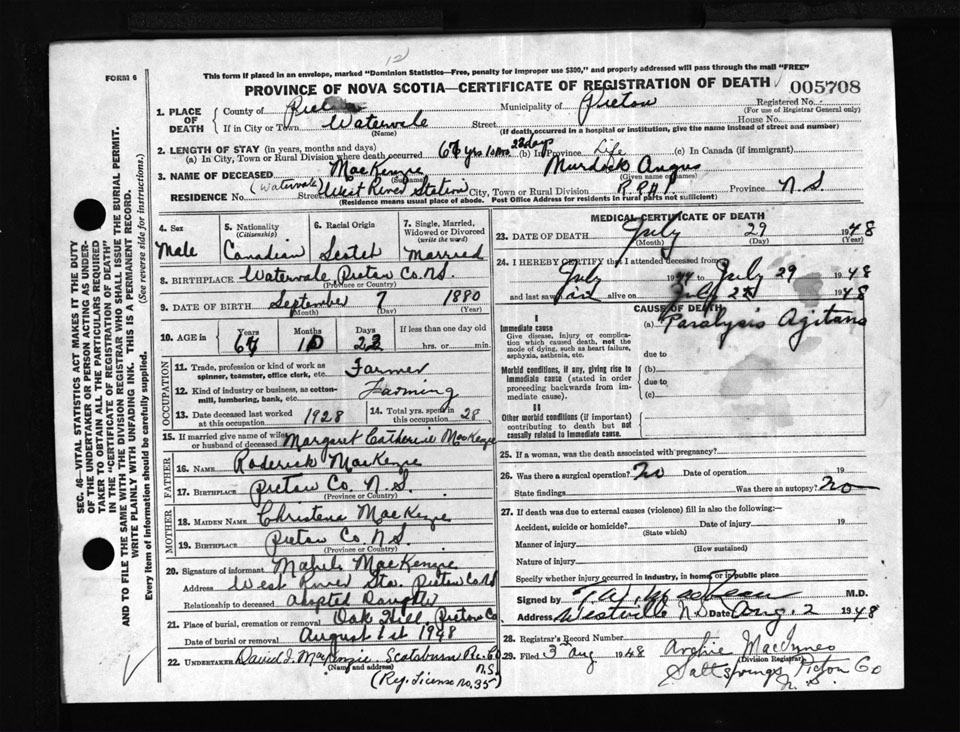 12
FORM 6
This form if placed in an envelope, marked "Dominion Statistics—Free, penalty for improper use $300," and properly addressed will pass through the mail "FREE"
PROVINCE OF NOVA SCOTIA—CERTIFICATE OF REGISTRATION OF DEATH
005708
1. PLACE OF DEATH
County of Pictou Municipality of Pictou Registered No.
(For use of Registrar General only)
If in City or Town Watervale Street House No.
(Name) (If death occurred in a hospital or institution, give the name instead of street and number)
2. LENGTH OF STAY (in years, months and days)
(a) In City, Town or Rural Division where death occurred 67 yrs 10 mos 22 days (b) In Province Life (c) In Canada (if immigrant)
3. NAME OF DECEASED MacKenzie Murdock Angus
(Surname) (Given name or names)
RESIDENCE No. (Watervale) Street West River Station City, Town or Rural Division R.R.#1 Province N S
(Residence means usual residence. Post Office Address for residents in rural parts not sufficient)
4. Sex Male
5. Nationality (Citizenship) Canadian
6. Racial Origin Scotch
7. Single, Married, Widowed or Divorced (write the word) Married
8. BIRTHPLACE Watervale Pictou Co. N.S.
(Province or Country)
9. DATE OF BIRTH September 7 1880
(Month) (Day) (Year)
10. AGE in Years Months Days If less than one day old
67 10 22 hrs. or min.
OCCUPATION
11. Trade, profession or kind of work as spinner, teamster, office clerk, etc. Farmer
12. Kind of industry or business, as cotton-mill, lumbering, bank, etc. Farming
13. Date deceased last worked at this occupation 1928
14. Total yrs. spent in this occupation 28
15. If married give name of wife or husband of deceased Margaret Catherine MacKenzie
FATHER
16. NAME Roderick MacKenzie
17. BIRTHPLACE Pictou Co. N.S.
(Province or Country)
MOTHER
18. MAIDEN NAME Christena MacKenzie
19. BIRTHPLACE Pictou Co. N.S.
(Province or Country)
20. Signature of informant MacKenzie
Address West River Sta. Pictou Co NS
Relationship to deceased Adopted Daughter
21. Place of burial, cremation or removal Oak Hill, Pictou Co
Date of burial or removal August 1st 1948
22. UNDERTAKER David J. MacKenzie, Scotsburn Pic. Co N.S.
(Name and address)
(Reg. License No. 35)
MEDICAL CERTIFICATE OF DEATH
23. DATE OF DEATH July 29 1948
(Month) (Day) (Year)
24. I HEREBY CERTIFY that I attended deceased from
July 1944 to July 29 1948
and last saw him alive on July 1948
CAUSE OF DEATH
I
Immediate cause
Give disease, injury or complication which caused death, not the mode of dying, such as heart failure, asphyxia, asthenia, etc.
(a) Paralysis Agitans
due to
Morbid conditions, if any, giving rise to immediate cause (stated in order proceeding backwards from immediate cause).
(b)
due to
(c)
II
Other morbid conditions (if important) contributing to death but not causally related to immediate cause.
25. If a woman, was the death associated with pregnancy?
26. Was there a surgical operation? No Date of operation 19
State findings Was there an autopsy? No
27. If death was due to external causes (violence) fill in also the following:—
Accident, suicide or homicide? Date of injury 19
(State which)
Manner of injury
(How sustained)
Nature of injury
Specify whether injury occurred in industry, in home, or in public place
Signed by M.D.
Address Westville N.S Date Aug. 2 1948
28. Registrar's Record Number
29. Filed 3rd Aug 1948 Archie MacInnes
(Division Registrar)
Saltsprings Pictou Co
N.S.
SEC. 46—VITAL STATISTICS ACT MAKES IT THE DUTY
OF THE UNDERTAKER OR PERSON ACTING AS UNDER-
TAKER TO OBTAIN ALL THE PARTICULARS REQUIRED
IN THE "CERTIFICATE OF REGISTRATION OF DEATH"
AND TO FILE THE SAME WITH THE DIVISION REGISTRAR WHO SHALL ISSUE THE BURIAL PERMIT.
WRITE PLAINLY WITH UNFADING INK. THIS IS A PERMANENT RECORD.
Every item of information should be carefully supplied. (See reverse side for instructions.)